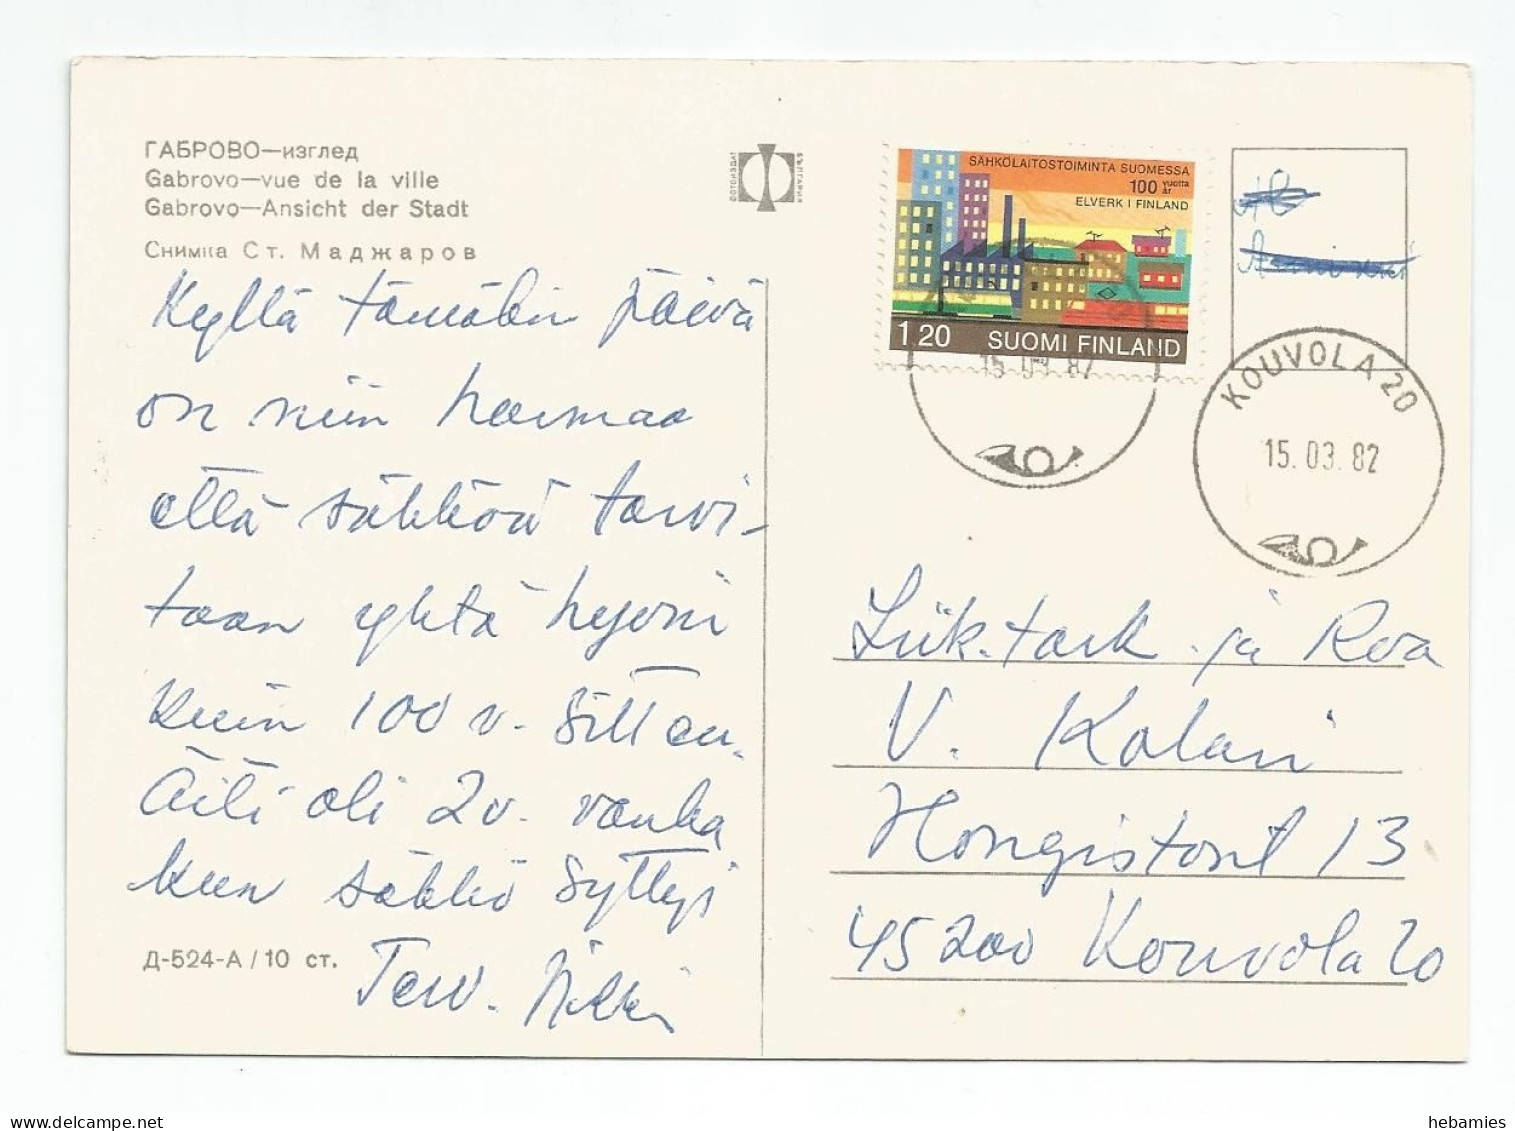 ГАБРОВО—изглед
Gabrovo—vue de la ville
Gabrovo—Ansicht der Stadt
Снимка Ст. Маджаров
Kyllä tämäkin päivä
on niin harmaa
että sähköä tarvi-
taan yhtä hyvin
kuin 100 v. sitten.
Äiti oli 2 v. vanha
kun sähkö syttyi
Terv.
Д-524-А / 10 ст.
ФОТОИЗДАТ
БЪЛГАРИЯ
SÄHKÖLAITOSTOIMINTA SUOMESSA
100 vuotta år
ELVERK I FINLAND
1.20 SUOMI FINLAND
15 03 82
KOUVOLA 20
15. 03. 82
Liik.tark. ja Rva
V. Kalari
Hongistontie 13
45200 Kouvola 20
hebamies